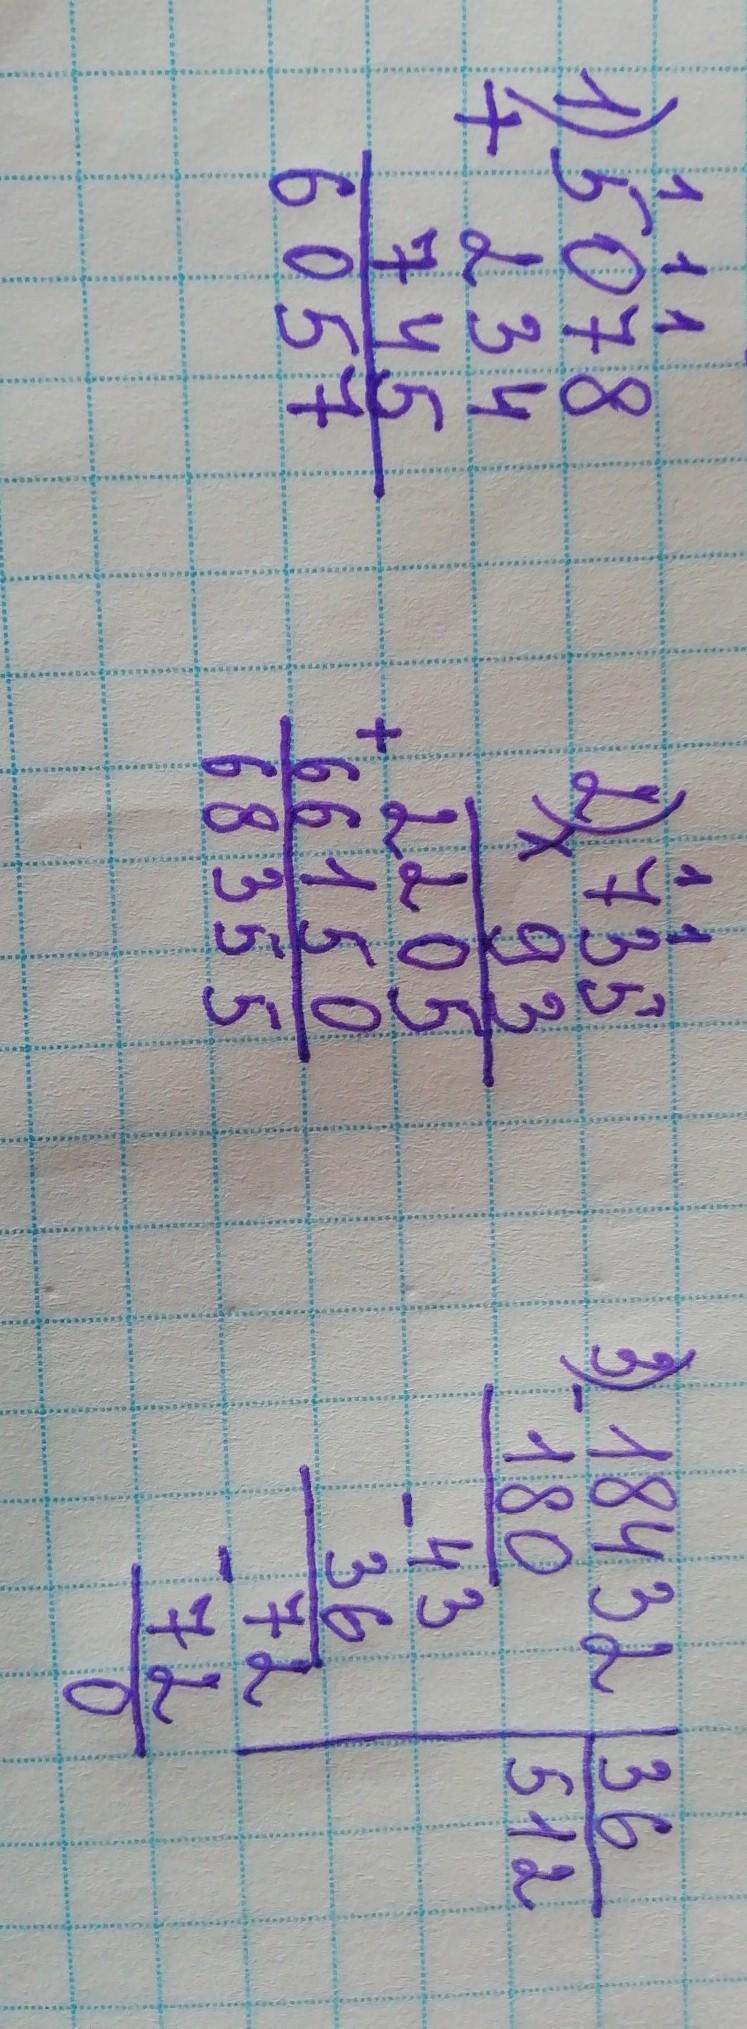 1) 1 1 1
5078
+ 234
745
6057
2) 1 1
735
× 93
2205
+ 66150
68355
3) - 18432 | 36
180 | 512
- 43
36
- 72
72
0